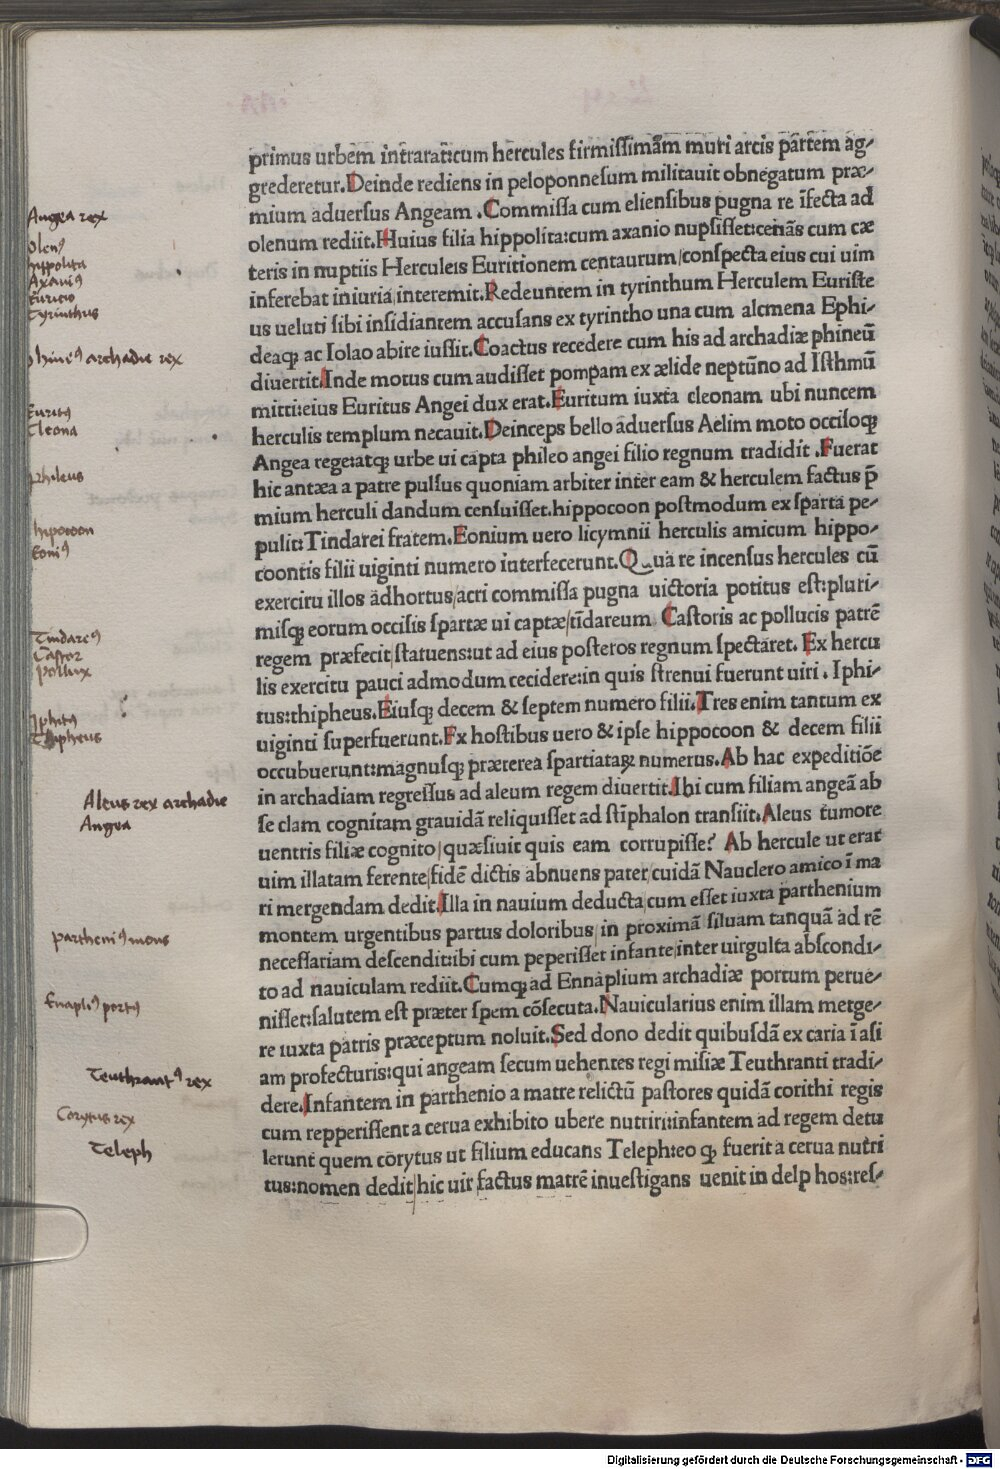 primus urbem intrarat:cum hercules firmiſſimām muri arcis partem ag⸗
grederetur.Deinde rediens in peloponneſum militauit obnegatum præ⸗
mium aduerſus Angeam .Commiſſa cum elienſibus pugna re īfecta ad
olenum rediit.Huius filia hippolita:cum axanio nupſiſſet:cenās cum cæ
teris in nuptiis Herculeis Euritionem centaurum/conſpecta eius cui uim
inferebat iniuria/interemit.Redeuntem in tyrinthum Herculem Euriſte
us ueluti ſibi inſidiantem accuſans ex tyrintho una cum alcmena Ephi⸗
deaqꝫ ac Iolao abire iuſſit.Coactus recedere cum his ad archadiæ phineū
diuertit.Inde motus cum audiſſet pompam ex ælide neptūno ad Iſthmū
mitti:eius Euritus Angei dux erat.Euritum iuxta cleonam ubi nuncem
herculis templum necauit.Deinceps bello aduerſus Aelim moto occiſoqꝫ
Angea rege:atqꝫ urbe ui capta phileo angei filio regnum tradidit .Fuerat
hic antæa a patre pulſus quoniam arbiter inter eam & herculem factus p̄
mium herculi dandum cenſuiſſet.hippocoon poſtmodum ex ſparta pe⸗
pulit:Tindarei fratem.Eonium uero licymnii herculis amicum hippo⸗
coontis filii uiginti numero interfecerunt.Qua re incenſus hercules cū
exercitu illos adhortus/acri commiſſa pugna uictoria potitus eſt:pluri⸗
miſqꝫ eorum occiſis ſpartæ ui captæ/tīdareum Caſtoris ac pollucis patrē
regem præfecit/ſtatuens:ut ad eius poſteros regnum ſpectāret. Ex hercu
lis exercitu pauci admodum cecidere:in quis ſtrenui fuerunt uiri . Iphi⸗
tus:thipheus.Eiuſqꝫ decem & ſeptem numero filii.Tres enim tantum ex
uiginti ſuperfuerunt.Ex hoſtibus uero & ipſe hippocoon & decem filii
occubuerunt:magnuſqꝫ præterea ſpartiataꝝ numerus.Ab hac expeditiōe
in archadiam regreſſus ad aleum regem diuertit.Ibi cum filiam angeā ab
ſe clam cognitam grauidā reliquiſſet ad ſtīphalon tranſiit.Aleus tumore
uentris filiæ cognito/quæſiuit quis eam corrupiſſe? Ab hercule ut erat
uim illatam ferente/fidē dictis abnuens pater/cuidā Nauclero amico ī ma
ri mergendam dedit.Illa in nauium deducta/cum eſſet iuxta parthenium
montem urgentibus partus doloribus/in proximā ſiluam tanquā ad rē
neceſſariam deſcendit:ibi cum peperiſſet infante/inter uirgulta abſcondi⸗
to ad nauiculam rediit.Cumqꝫ ad Ennaplium archadiæ portum peruē⸗
niſſet:ſalutem eſt præter ſpem cōſecuta.Nauicularius enim illam metge⸗
re iuxta patris præceptum noluit.Sed dono dedit quibuſdā ex caria ī aſi
am profecturis:qui angeam ſecum uehentes regi miſiæ Teuthranti tradi⸗
dere.Infantem in parthenio a matre relictū paſtores quidā corithi regis
cum repperiſſent a cerua exhibito ubere nutriri:infantem ad regem detu
lerunt quem corytus ut filium educans Teleph:eo qꝫ fuerit a cerua nutri
tus:nomen dedit/hic uir factus matrē inueſtigans uenit in delp hos:reſ⸗
Angea rex
Olenꝰ
hippolita
Axaniꝰ
Euritio
Tyrinthus
phineꝰ archadie rex
Euritꝰ
Cleona
phileus
hipocoon
Eoniꝰ
Tindareꝰ
Castor
Pollux
Iphitꝰ
Thipheus
Aleus rex archadie
Angea
partheniꝰ mons
Enapliꝰ portꝰ
Teuthrantꝰ rex
Corytus rex
Teleph
Digitalisierung gefördert durch die Deutsche Forschungsgemeinschaft - DFG